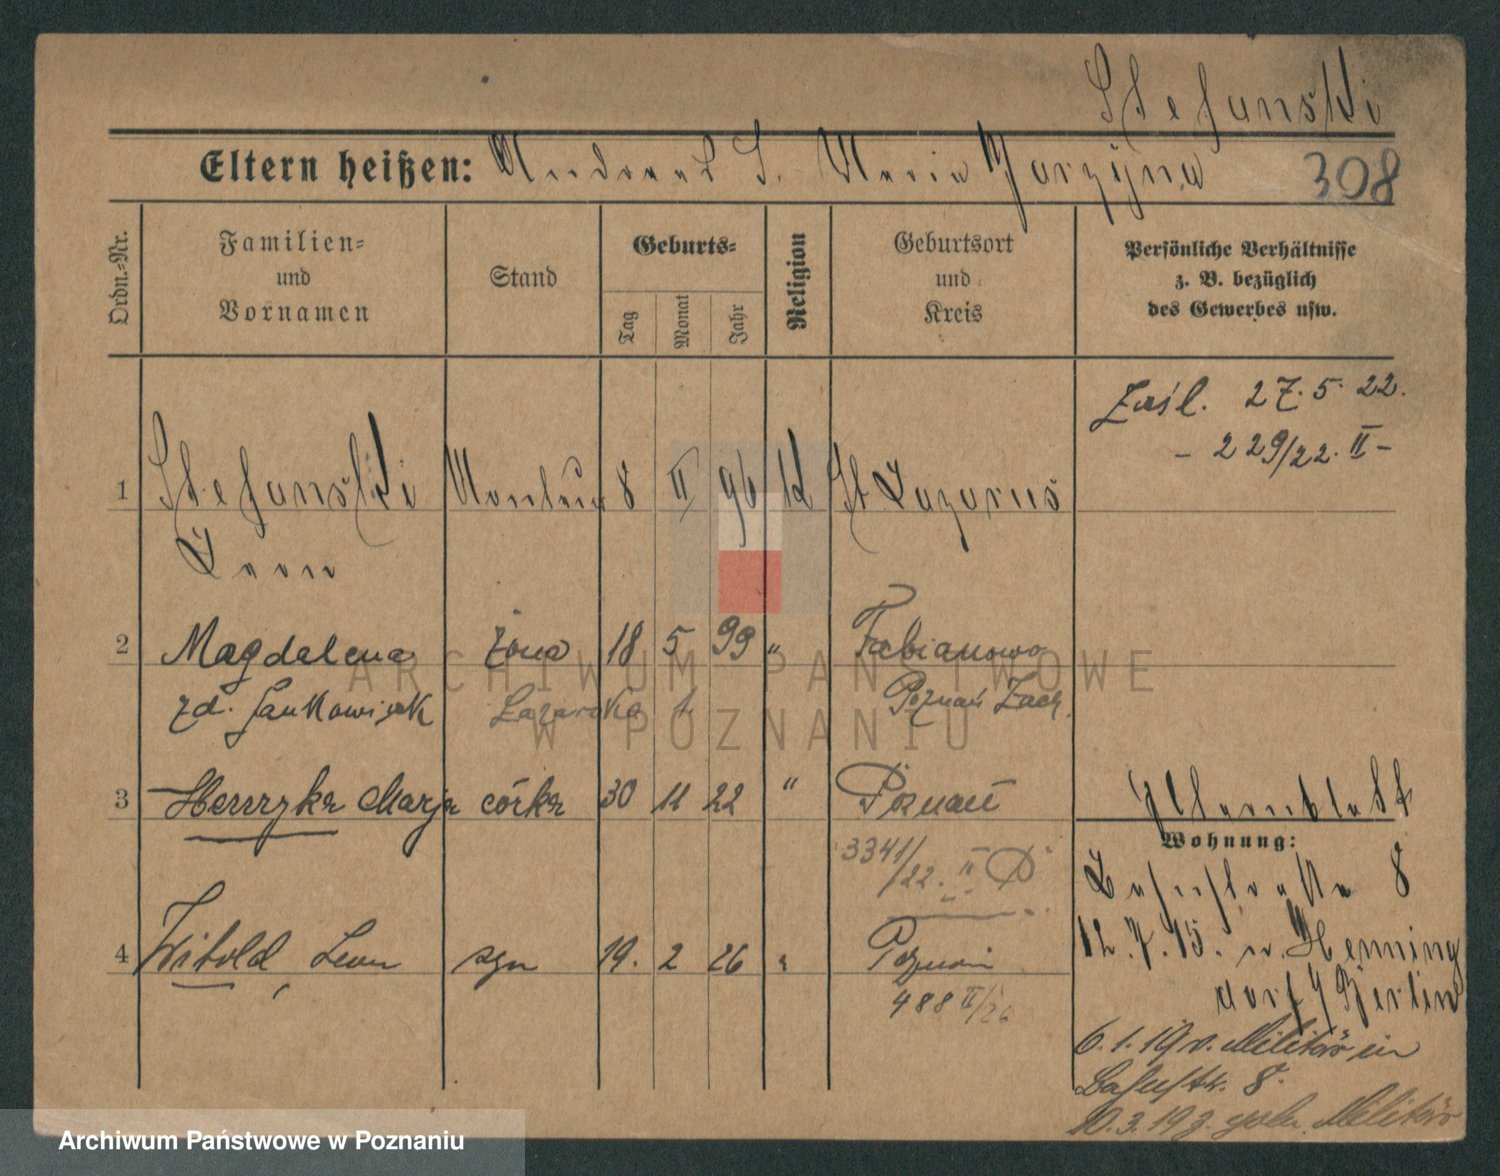 Stefanski
Eltern heißen: Andreas S. Maria Jarzyna
308
Ordn.-Nr.
Familien-
und
Vornamen
Stand
Geburts-
Tag
Monat
Jahr
Religion
Geburtsort
und
Kreis
Persönliche Verhältnisse
z. B. bezüglich
des Gewerbes usw.
Zaśl. 27.5.22.
- 229/22. II -
1 Stefanski Monteur 8 II 96 K St. Lazarus
Leon
2 Magdalena żona 18 5 99 " Fabianowo
zd. Jankowiak Poznań Zach.
3 Henryka Marja córka 30 11 22 " Poznań
3341/22. II
4 Witold, Leon syn 19. 2 26 " Poznań
488 II/26
Elternblatt
Wohnung:
8
12.7.15. n. Henning
dorf / Berlin
6.1.19 v. Militär in
8.
10.3.19 z. poln. Militär
ARCHIWUM PAŃSTWOWE
W POZNANIU
Archiwum Państwowe w Poznaniu